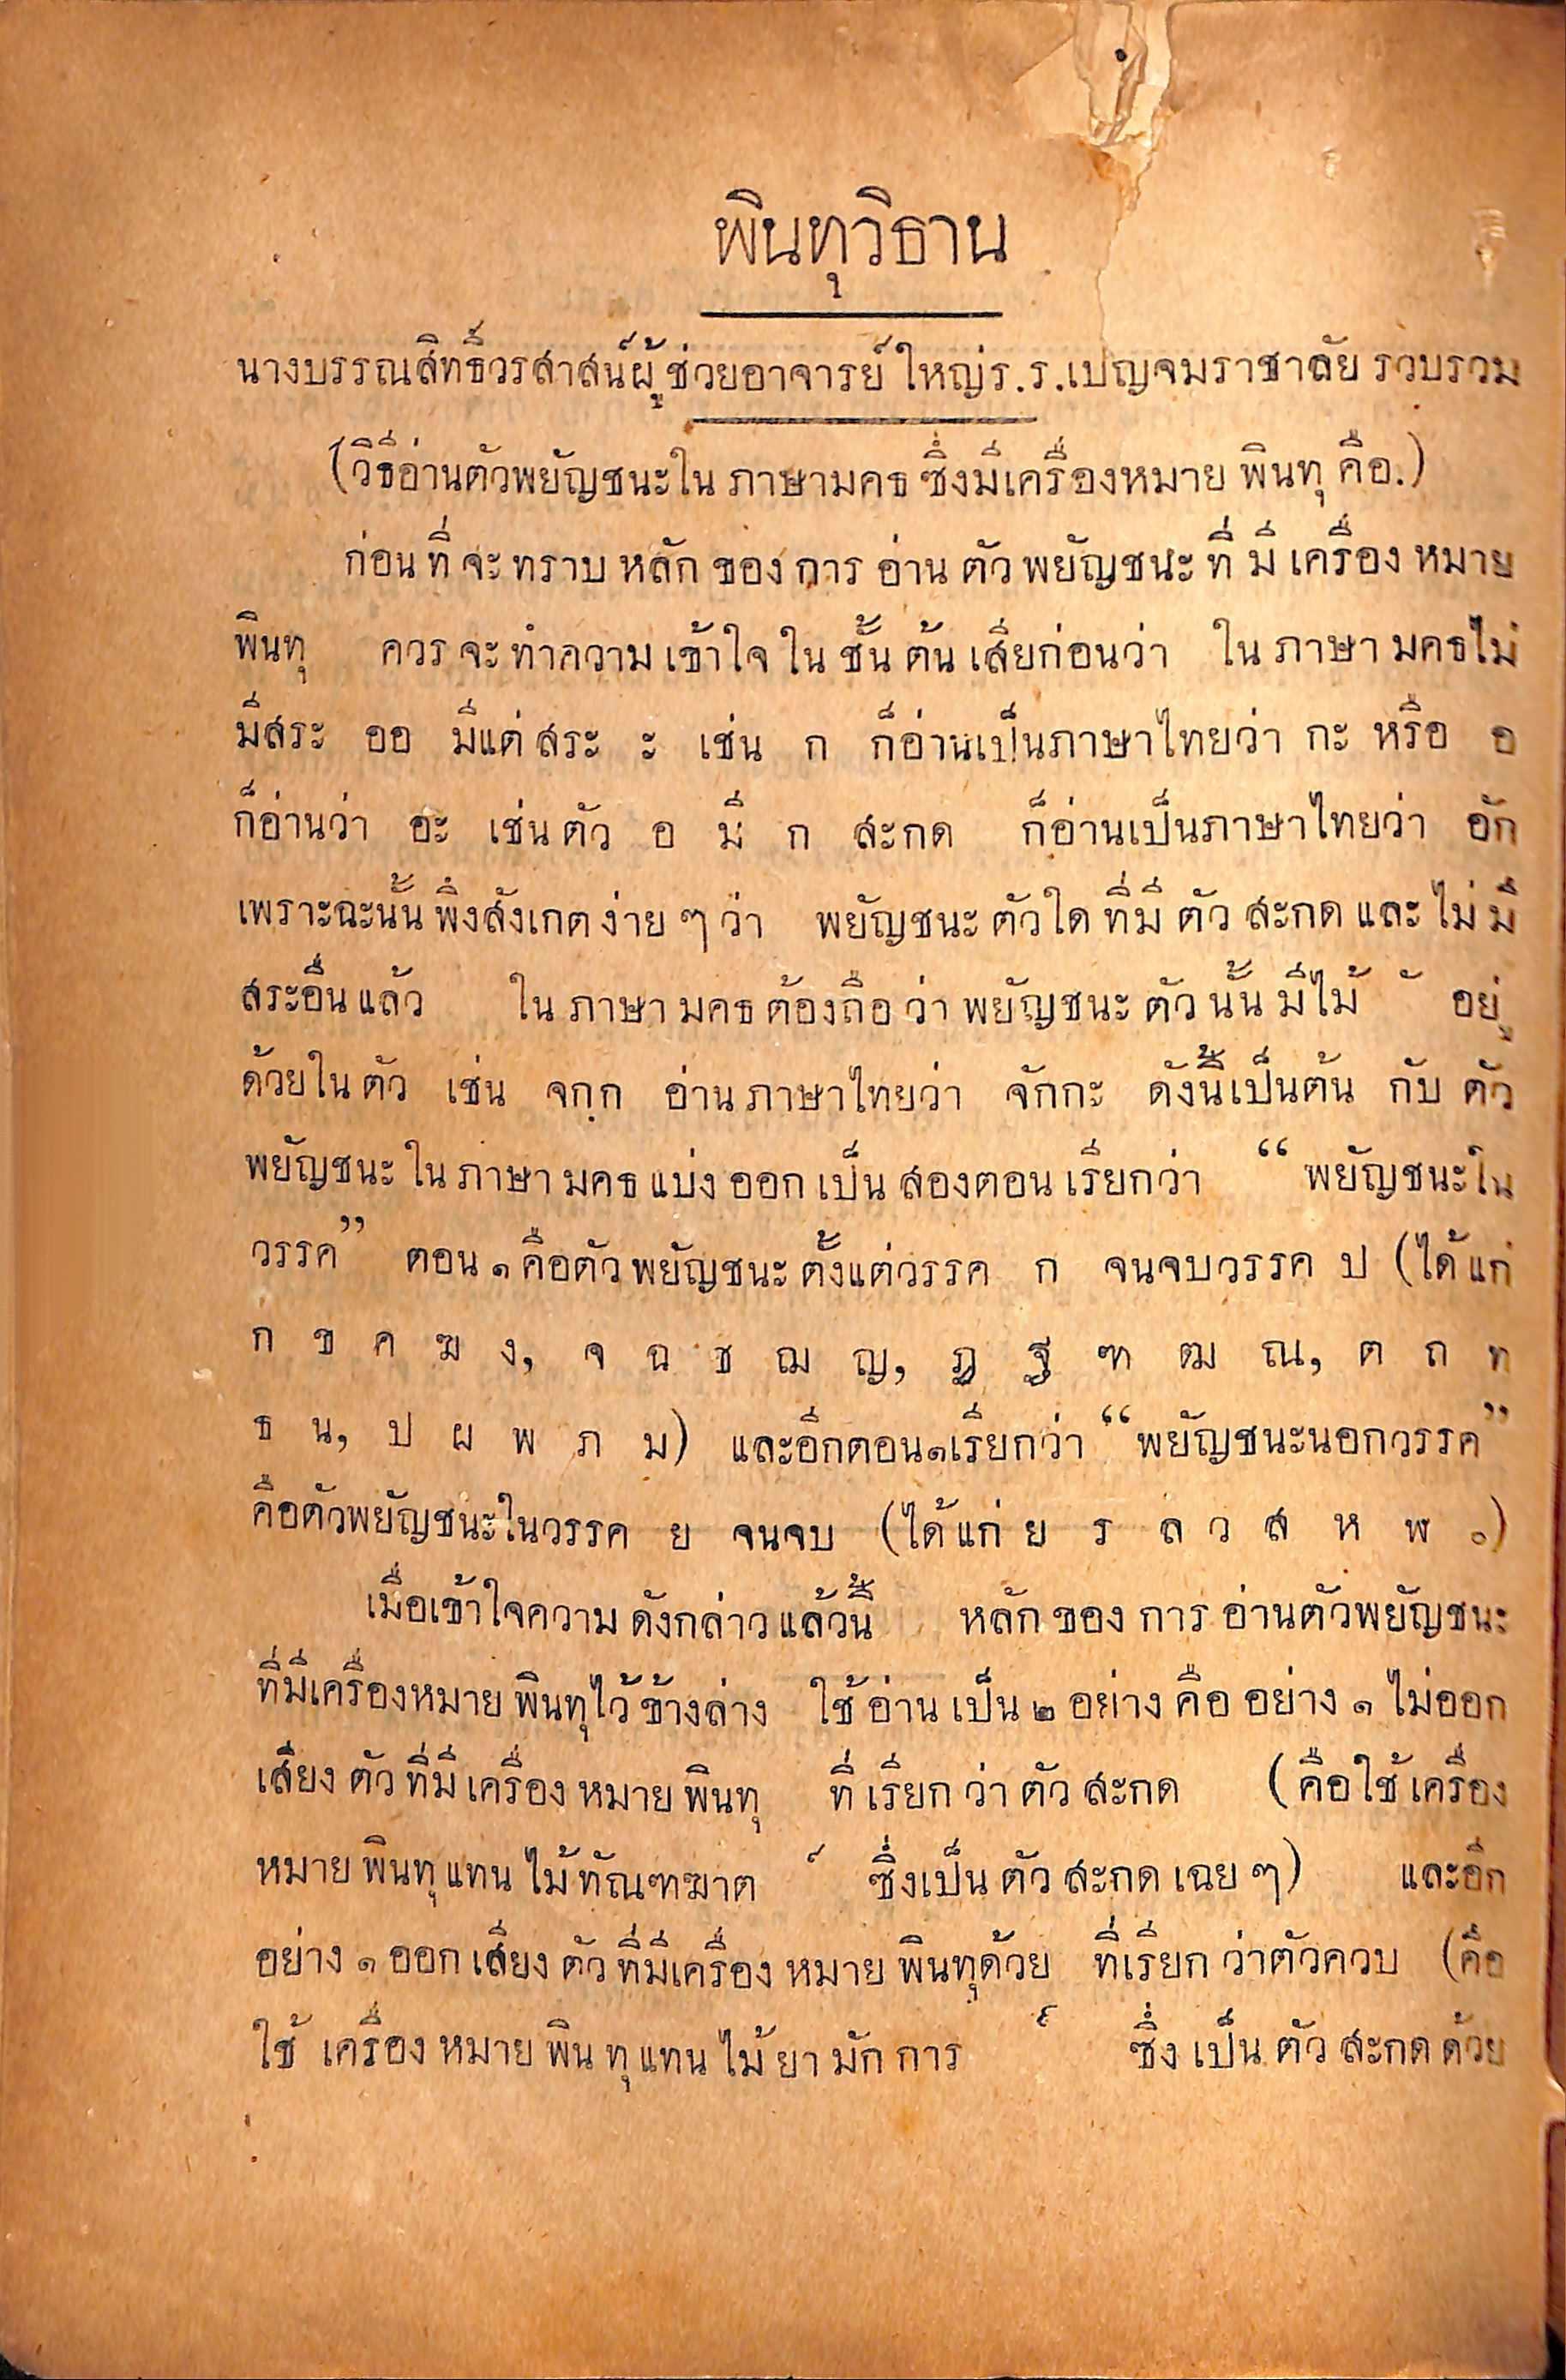 พินทุวิธาน
นางบรรณสิทธิ์วรสาสน์ผู้ช่วยอาจารย์ใหญ่ร.ร.เบญจมราชาลัย รวบรวม
(วิธีอ่านตัวพยัญชนะในภาษามคธซึ่งมีเครื่องหมายพินทุคือ.)
ก่อนที่จะทราบหลักของการอ่านตัวพยัญชนะที่มีเครื่องหมาย
พินทุ ควรจะทำความเข้าใจในชั้นต้นเสียก่อนว่า ในภาษามคธไม่
มีสระ ออ มีแต่สระ ะ เช่น ก ก็อ่านเป็นภาษาไทยว่า กะ หรือ อ
ก็อ่านว่า อะ เช่นตัว อ มี ก สะกด ก็อ่านเป็นภาษาไทยว่า อัก
เพราะฉะนั้นพึงสังเกตง่ายๆว่า พยัญชนะตัวใดที่มีตัวสะกดและไม่มี
สระอื่นแล้ว ในภาษามคธต้องถือว่าพยัญชนะตัวนั้นมีไม้ ั อยู่
ด้วยในตัว เช่น จกฺก อ่านภาษาไทยว่า จักกะ ดังนี้เป็นต้น กับตัว
พยัญชนะในภาษามคธแบ่งออกเป็นสองตอนเรียกว่า “พยัญชนะใน
วรรค” ตอน๑คือตัวพยัญชนะตั้งแต่วรรค ก จนจบวรรค ป (ได้แก่
ก ข ค ฆ ง, จ ฉ ช ฌ ญ, ฏ ฐ ฑ ฒ ณ, ต ถ ท
ธ น, ป ผ พ ภ ม) และอีกตอน๑เรียกว่า “พยัญชนะนอกวรรค”
คือตัวพยัญชนะในวรรค ย จนจบ (ได้แก่ ย ร ล ว ส ห ฬ ํ)
เมื่อเข้าใจความดังกล่าวแล้วนี้ หลักของการอ่านตัวพยัญชนะ
ที่มีเครื่องหมายพินทุไว้ข้างล่าง ใช้อ่านเป็น ๒ อย่างคือ อย่าง ๑ ไม่ออก
เสียงตัวที่มีเครื่องหมายพินทุ ที่เรียกว่าตัวสะกด (คือใช้เครื่อง
หมายพินทุแทนไม้ทัณฑฆาต ์ ซึ่งเป็นตัวสะกดเฉยๆ) และอีก
อย่าง ๑ ออกเสียงตัวที่มีเครื่องหมายพินทุด้วย ที่เรียกว่าตัวควบ (คือ
ใช้เครื่องหมายพินทุแทนไม้ยามักการ ๎ ซึ่งเป็นตัวสะกดด้วย